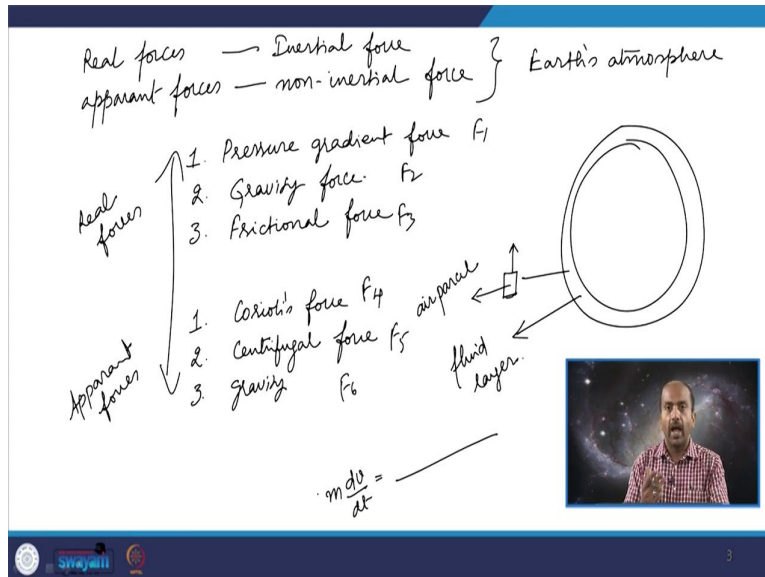 Real forces — Inertial force
apparant forces — non-inertial force } Earth's atmosphere
Real forces
1. Pressure gradient force F1
2. Gravity force. F2
3. Frictional force F3
Apparant forces
1. Coriolis force F4
2. Centrifugal force F5
3. gravity F6
air parcel
fluid layer.
m dv/dt =
swayam
3